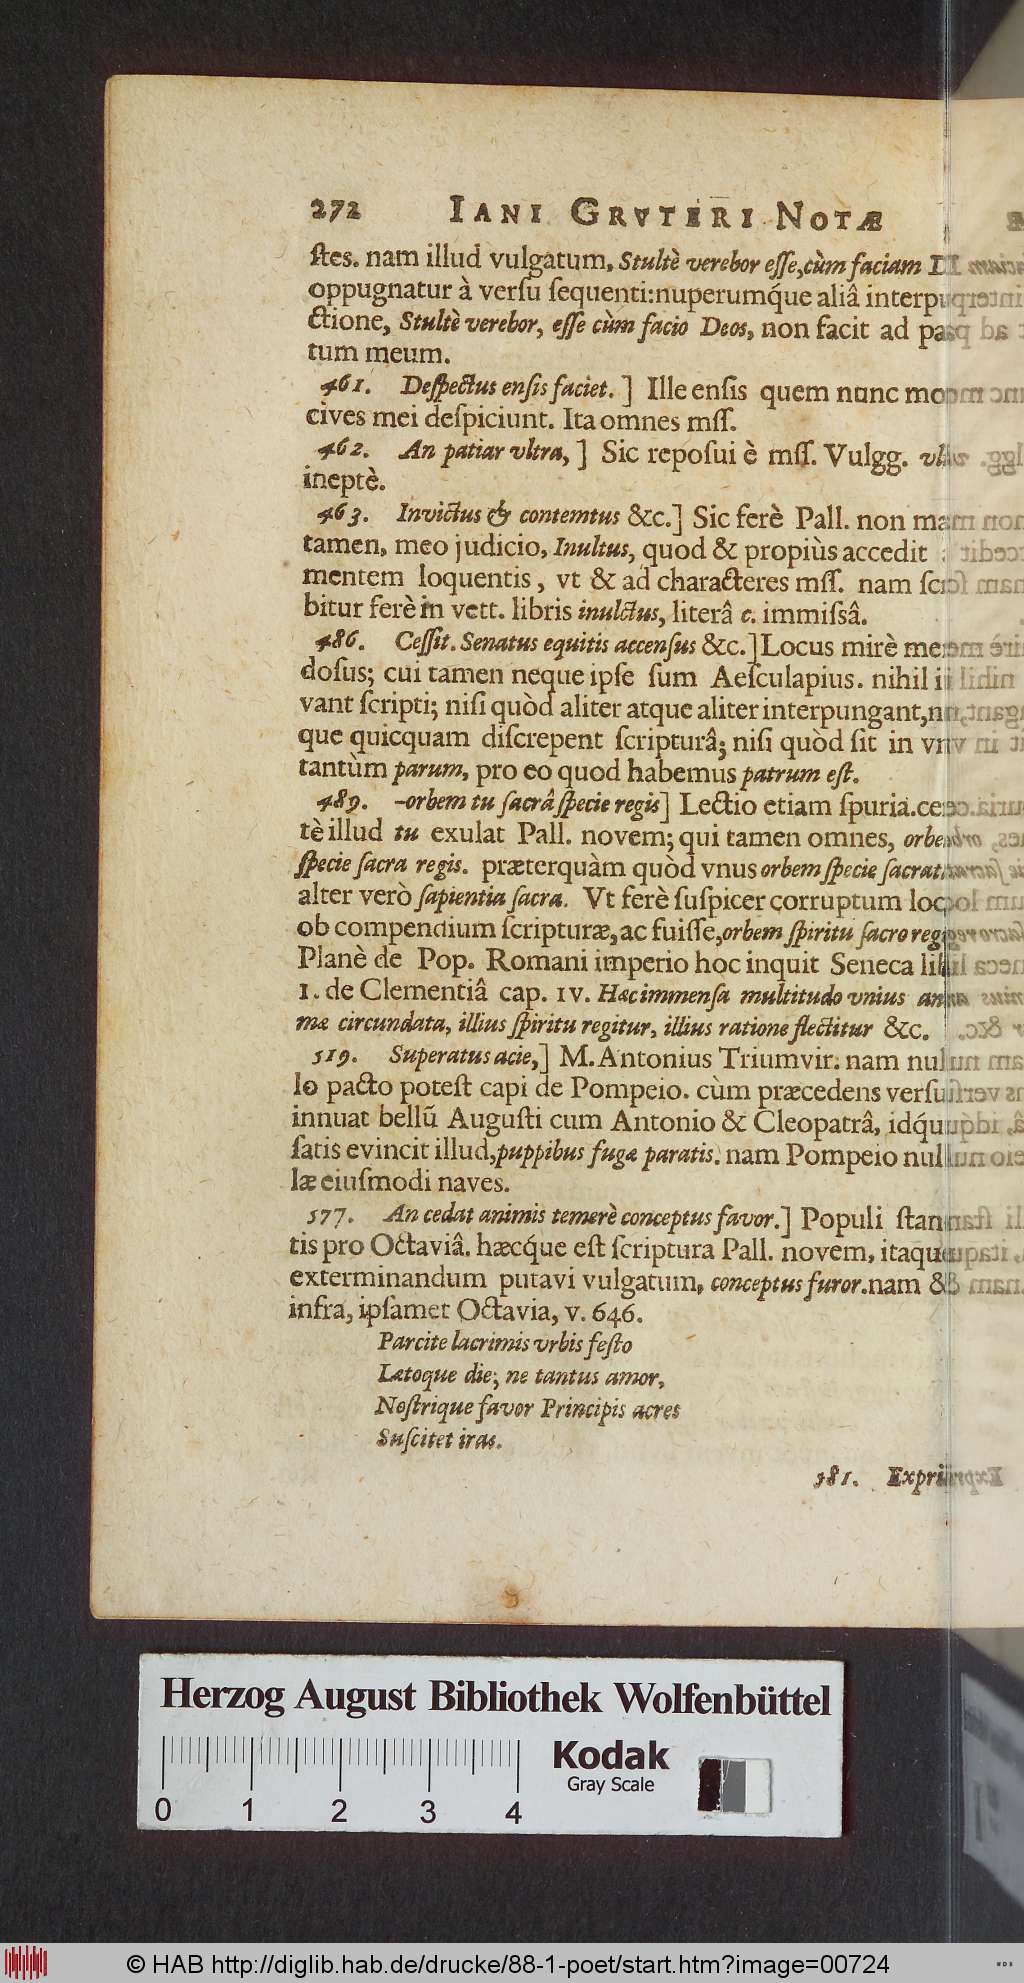 272 IANI GRVTERI NOTÆ
ſtes. nam illud vulgatum, Stultè verebor eſſe, cùm faciam
oppugnatur à verſu ſequenti: nuperumq́ue aliâ interpu
ctione, Stultè verebor, eſſe cùm facio Deos, non facit ad pa
tum meum.
461. Deſpectus enſis faciet. ] Ille enſis quem nunc mo
cives mei deſpiciunt. Ita omnes mſſ.
462. An patiar vltra, ] Sic repoſui è mſſ. Vulgg. vl
ineptè.
463. Invictus & contemtus &c.] Sic ferè Pall. non ma
tamen, meo judicio, Inultus, quod & propiùs accedit
mentem loquentis, vt & ad characteres mſſ. nam ſcri
bitur ferè in vett. libris inulctus, literâ c. immiſsâ.
486. Ceſſit. Senatus equitis accenſus &c.] Locus mirè me
doſus; cui tamen neque ipſe ſum Aeſculapius. nihil i
vant ſcripti; niſi quòd aliter atque aliter interpungant, n
que quicquam diſcrepent ſcripturâ; niſi quòd ſit in vn
tantùm parum, pro eo quod habemus patrum eſt.
489. -orbem tu ſacrâ ſpecie regis] Lectio etiam ſpuria. ce
tè illud tu exulat Pall. novem; qui tamen omnes, orbe
ſpecie ſacra regis. præterquàm quòd vnus orbem ſpecie ſacrat.
alter verò ſapientia ſacra. Vt ferè ſuſpicer corruptum loc
ob compendium ſcripturæ, ac fuiſſe, orbem ſpiritu ſacro reg
Planè de Pop. Romani imperio hoc inquit Seneca lib
1. de Clementiâ cap. IV. Hæc immenſa multitudo vnius ani
mæ circundata, illius ſpiritu regitur, illius ratione flectitur &c.
519. Superatus acie,] M. Antonius Triumvir. nam nul
lo pacto poteſt capi de Pompeio. cùm præcedens verſu
innuat bellū Auguſti cum Antonio & Cleopatrâ, idq́u
ſatis evincit illud, puppibus fugæ paratis. nam Pompeio nul
læ eiuſmodi naves.
577. An cedat animis temerè conceptus favor.] Populi ſtan
tis pro Octaviâ. hæcq́ue eſt ſcriptura Pall. novem, itaqu
exterminandum putavi vulgatum, conceptus furor. nam &
infra, ipſamet Octavia, v. 646.
Parcite lacrimis vrbis feſto
Lætoque die; ne tantus amor,
Noſtrique favor Principis acres
Suſcitet iras.
581. Expri
Herzog August Bibliothek Wolfenbüttel
Kodak
Gray Scale
0 1 2 3 4
© HAB http://diglib.hab.de/drucke/88-1-poet/start.htm?image=00724